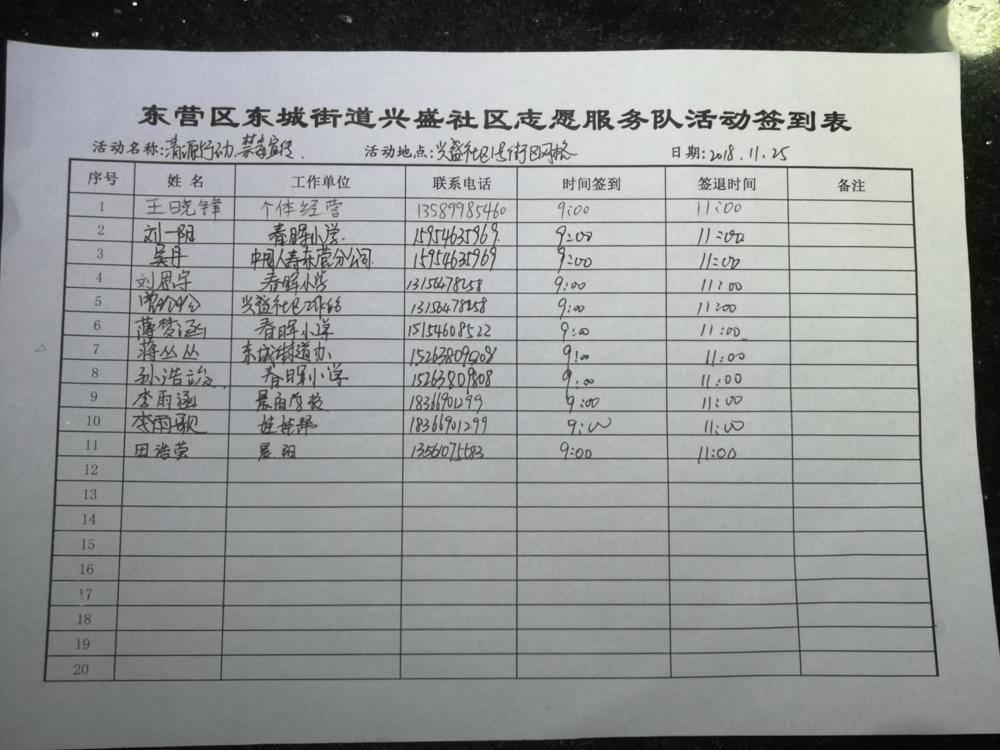 东营区东城街道兴盛社区志愿服务队活动签到表
活动名称:清源行动.禁毒宣传. 活动地点:兴盛社区1号街区网格 日期:2018.11.25
序号 姓名 工作单位 联系电话 时间签到 签退时间 备注
1 王晓锋 个体经营 13589985460 9:00 11:00
2 刘一阳 春晖小学. 15954635969. 9:00 11:00
3 吴丹 中国人寿东营分公司. 15954635969 9:00 11:00
4 刘恩宇 春晖小学 13156478258 9:00 11:00
5 兴盛社区 13156478258 9:00 11:00
6 薄梦涵 春晖小学 15154608522 9:00 11:00
7 蒋丛丛 东城街道办 15263809808 9:00 11:00
8 孙浩 春晖小学 15263809808 9:00 11:00
9 李雨涵 18366901299 9:00 11:00
10 李雨歌 娃娃 18366901299 9:00 11:00
11 田浩荣 晨阳 9:00 11:00
12
13
14
15
16
17
18
19
20